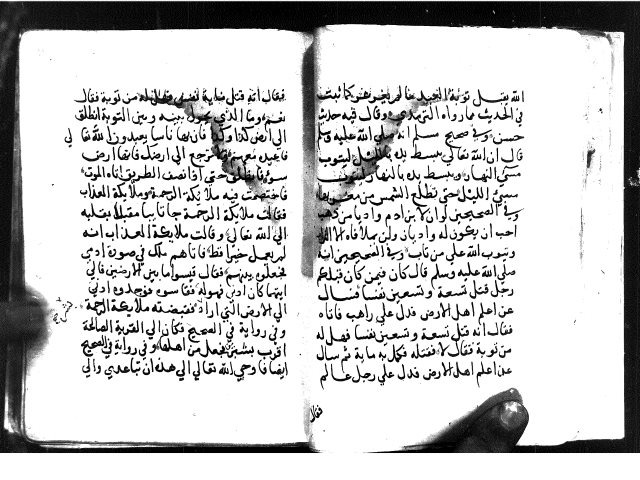 الله يقبل توبة العبد ما لم يغرغر كما ثبت
في الحديث مما رواه الترمذي وقال فيه حديث
حسن وفي صحيح مسلم انه صلي الله عليه وسلم
قال ان الله تعالي يبسط يده بالليل ليتوب
مسيئ النهار ويبسط يده بالنهار ليتوب
مسيئ الليل حتي تطلع الشمس من مغربها
وفي الصحيحين لو ان لابن ادم واديا من ذهب
احب ان يكون له واديان ولن يملأ فاه الا التراب
ويتوب الله علي من تاب وفي الصحيحين انه
صلي الله عليه وسلم قال كان فيمن كان قبلكم
رجل قتل تسعة وتسعين نفسا فسال
عن اعلم اهل الارض فدل علي راهب فاتاه
فقال انه قتل تسعة وتسعين نفسا فهل له
من توبة فقال لا فقتله فكمل به ماية ثم سال
عن اعلم اهل الارض فدل علي رجل عالم
فقال
فقال انه قتل ماية نفس فهل له من توبة فقال
نعم وما الذي يحول بينه وبين التوبة انطلق
الي ارض كذا وكذا فان بها ناسا يعبدون الله تعالي
فاعبد الله معهم ولا ترجع الي ارضك فانها ارض
سوء فانطلق حتي اذا نصف الطريق اتاه الموت
فاختصمت فيه ملائكة الرحمة وملائكة العذاب
فقالت ملائكة الرحمة جا تايبا مقبلا بقلبه
الي الله تعالي وقالت ملائكة العذاب انه
لم يعمل خيرا قط فاتاهم ملك في صورة ادمي
فجعلوه بينهم فقال قيسوا ما بين الارضين فالي
ايتهما كان ادني فهو له فقاسوه فوجدوه ادني
الي الارض التي اراد فقبضته ملائكة الرحمة
وفي رواية في الصحيح فكان الي القرية الصالحة
اقرب بشبر فجعل من اهلها وفي رواية في الصحيح
ايضا فاوحي الله تعالي الي هذه ان تباعدي والي